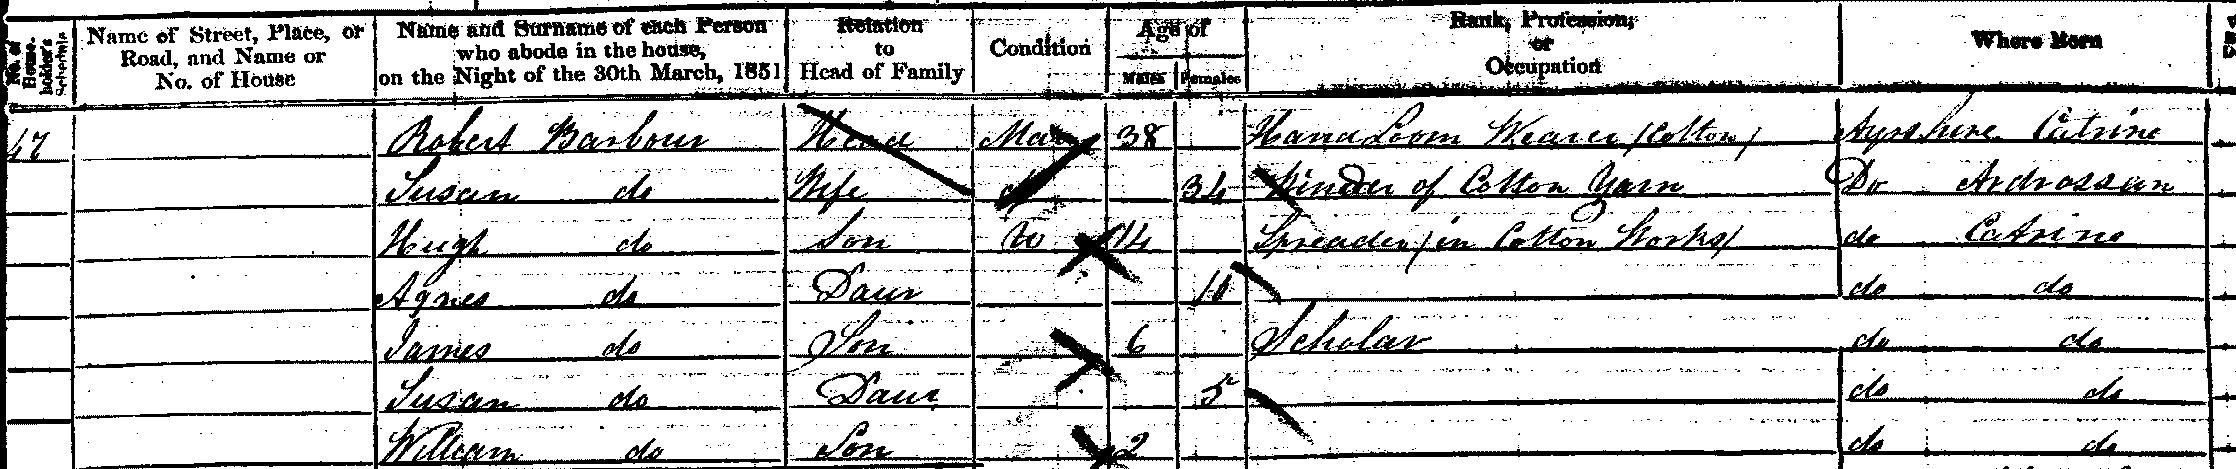 No. of House-holder's Schedule
Name of Street, Place, or Road, and Name or No. of House
Name and Surname of each Person who abode in the house, on the Night of the 30th March, 1851
Relation to Head of Family
Condition
Age of
Males Females
Rank, Profession, or Occupation
Where Born
47 Robert Barbour Head Mar 38 Hand Loom Weaver (Cotton) Ayrshire Catrine
Susan do Wife do 34 Winder of Cotton Yarn Do Ardrossan
Hugh do Son 14 Spreader (in Cotton Works) do Catrine
Agnes do Daur 10 do do
James do Son 6 Scholar do do
Susan do Daur 5 do do
William do Son 2 do do